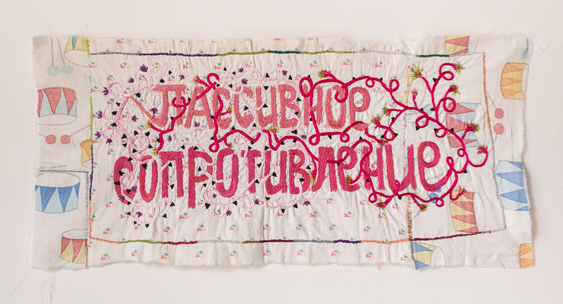 ПАССИВНОЕ
СОПРОТИВЛЕНИЕ